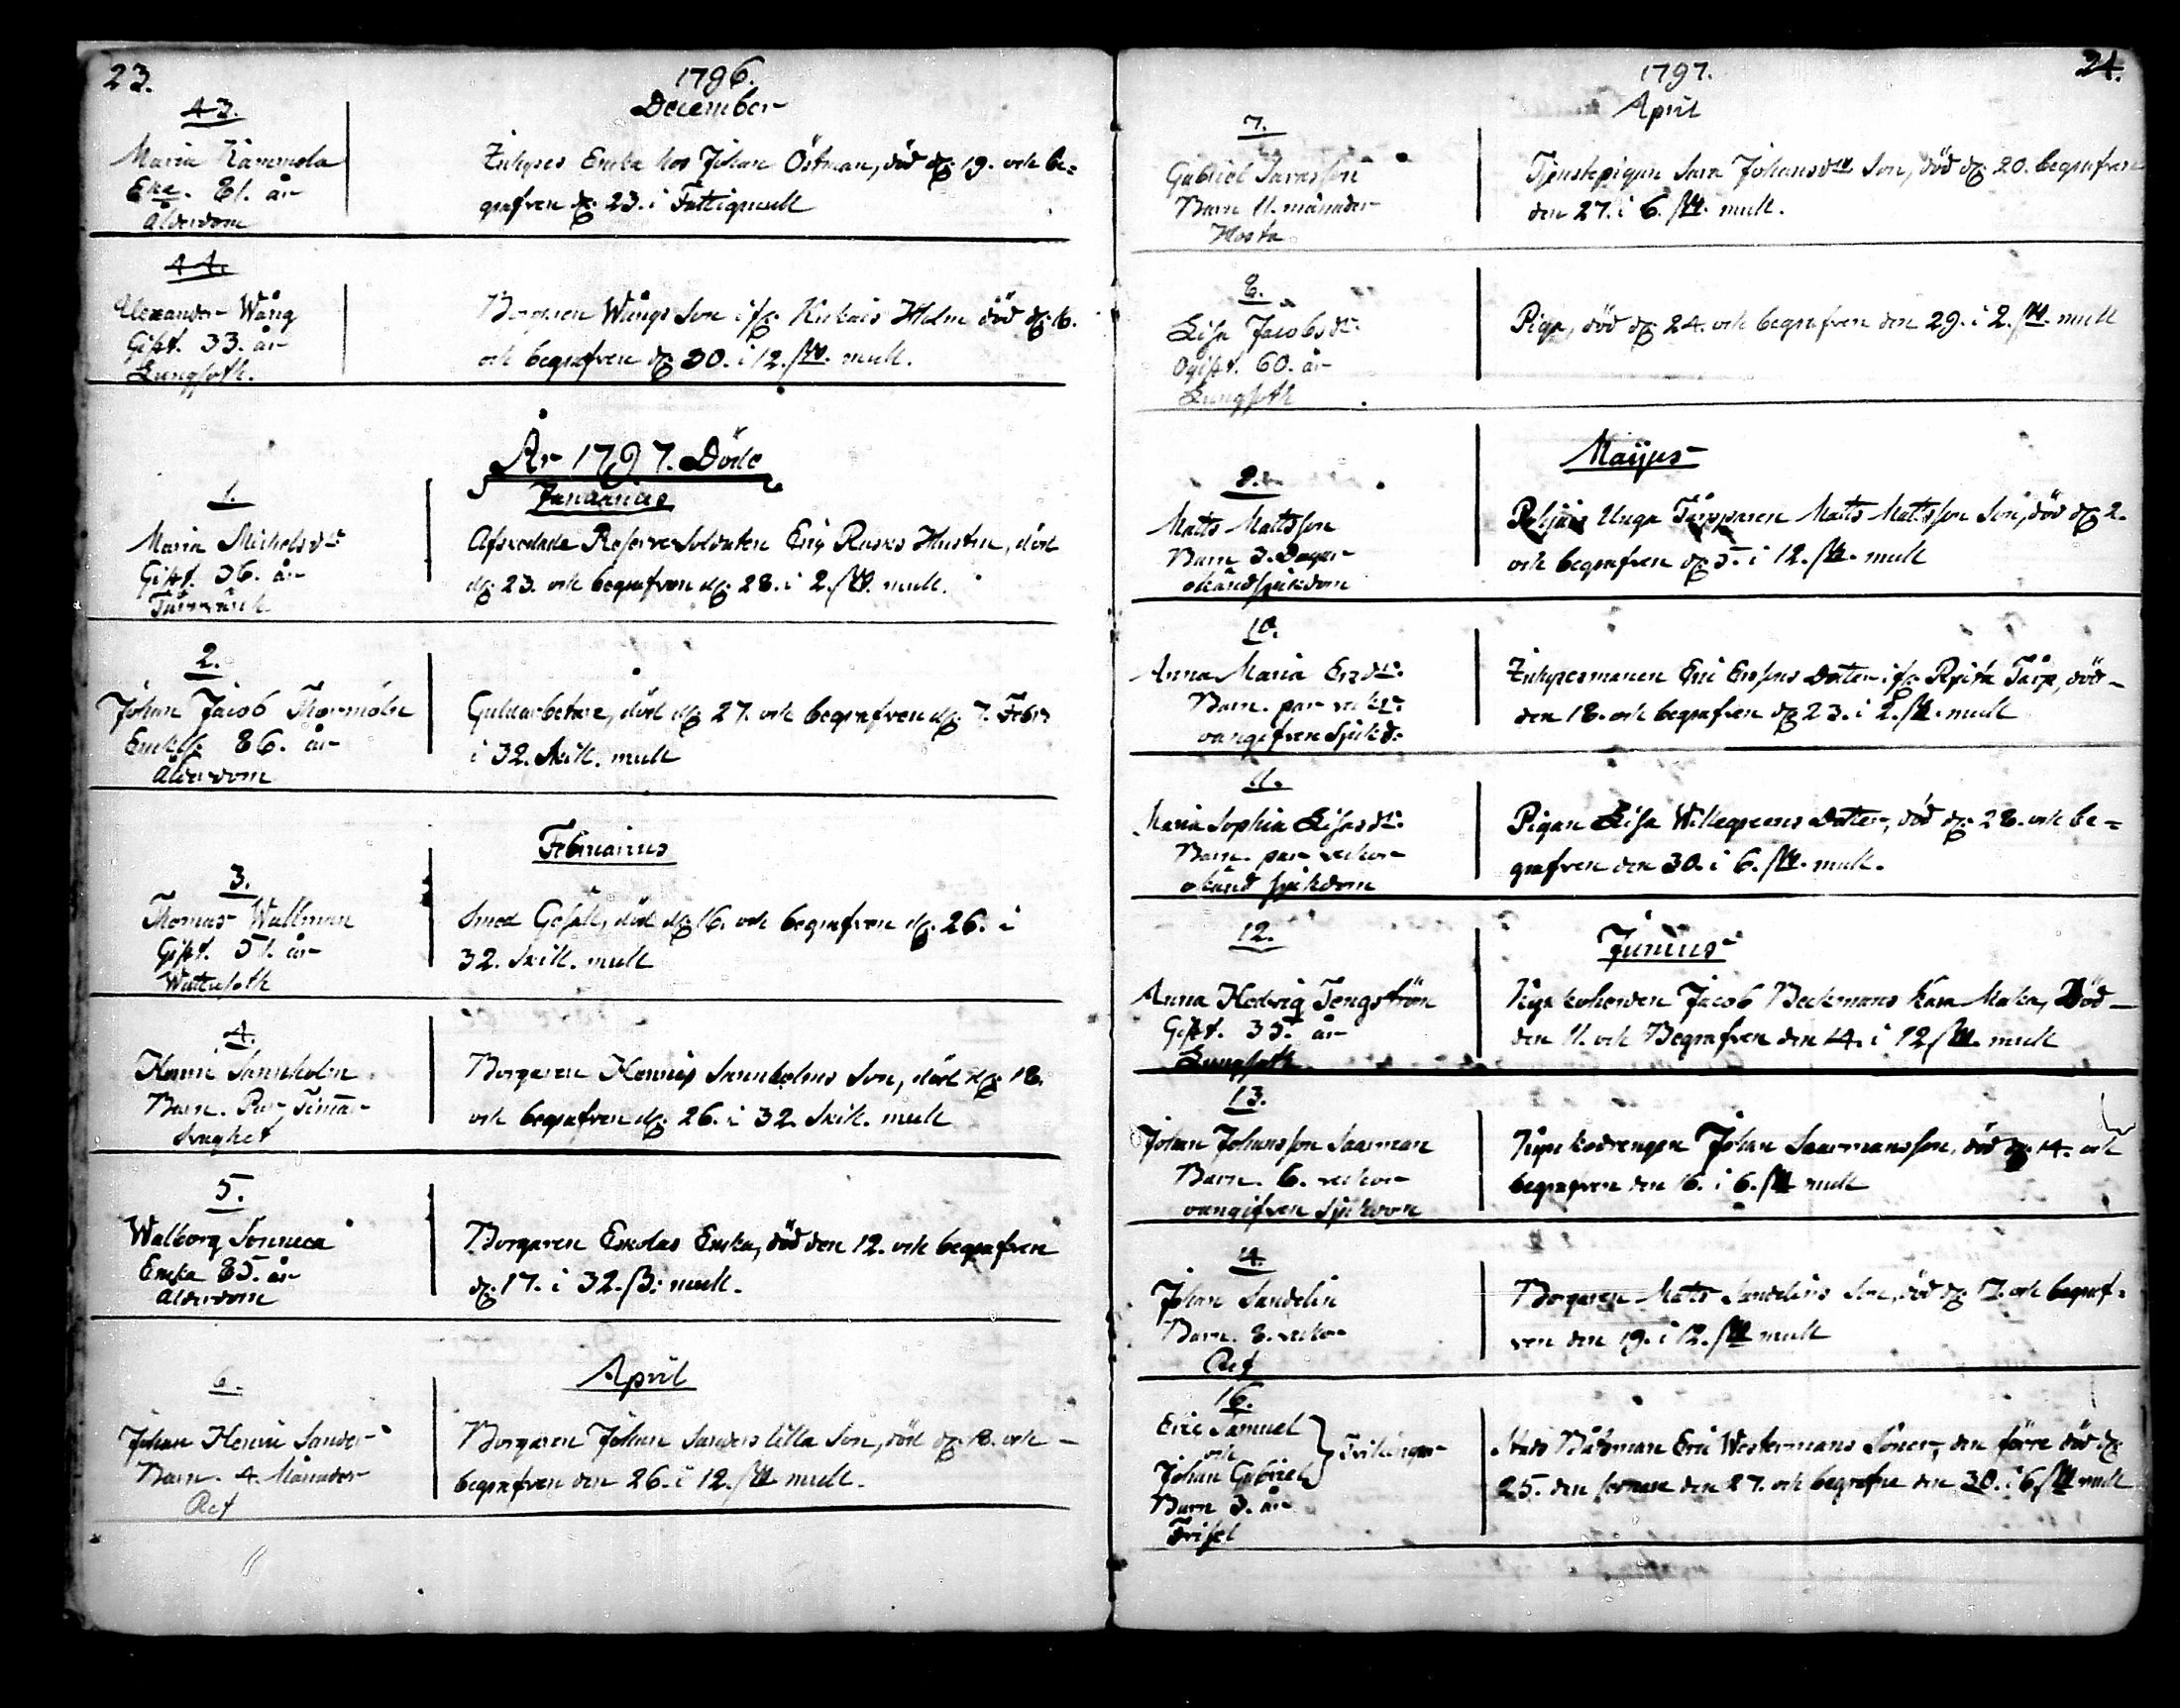 23.
1796.
December
43.
Maria Kämmola
Enka. 81. år
Ålderdom
Inhyses Enka hos Johan Östman, död d: 19. och be=
grafven d: 23. i Fattigmull
44.
Alexander Wång
Gift. 33. år
Lungsoth.
Borgaren Wångs Son ifr. Holm död d: 16.
och begrafven d: 30. i 12. sk. mull.
År 1797. Döde
Januarius
1.
Maria Michelsdr
Gift. 36. år
Afskedade Reserve Soldaten Eric Rusks Hustru, död
d: 23. och begrafven d: 28. i 2. sk. mull.
2.
Johan Jacob Thormöln
Enkl. 86. år
Ålderdom
Guldarbetare, död d: 27. och begrafven d: 7. Febr.
i 32. skill. mull
Februarius
3.
Thomas Wallman
Gift. 51. år
Wattusoth
Smed Gesäll, död d: 16. och begrafven d: 26. i
32. Skill. mull
4.
Henric Sannholm
Barn. Par Timar
Svaghet
Borgaren Henrics Sannholms Son, död d: 18.
och begrafven d: 26. i 32. Skill. mull
5.
Walborg Sonneca
Enka 85. år
Ålderdom
Borgaren Eskolas Enka, död den 12. och begrafven
d: 17. i 32. ß: mull.
April
6.
Johan Henric Sander
Barn. 4. Månader
Ref
Borgaren Johan Sanders lilla Son, död d: 18. och
begrafven den 26. i 12. sk. mull.
24.
1797.
April
7.
Gabriel Sarasson
Barn 11. månader
Hosta
Tjenstepigan Sara Johansdrs Son, död d: 20. begrafven
den 27. i 6. sk. mull.
8.
Lisa Jacobsdr
Ogift. 60. år
Lungsoth
Piga, död d: 24. och begrafven den 29. i 2. sk. mull
Maijus
9.
Matts Mattsson
Barn 3. Dagar
okänd sjukdom
Unga Matts Mattsson Son, död d: 2.
och begrafven d: 5. i 12. sk. mull
10.
Anna Maria Ersdr
Barn. par veckor
oangifven Sjukd:
Inhysesmanen Eric Erssons Dotter ifr. död
den 18. och begrafven d: 23. i 2. sk. mull
11.
Maria Sophia Lisasdr
Barn. par veckor
okänd sjukdom
Pigan Lisa Willegreens Dotter, död d: 28. och be=
grafven den 30. i 6. sk. mull.
12.
Junius
Anna Hedvig Tengström
Gift. 35. år
Lungsoth
Jacob Beckmans Kära Maka, Död
den 11. och Begrafven den 14. i 12 sk. mull
13.
Johan Johansson Saarman
Barn. 6. veckor
oangifven Sjukdom
Johan Saarmans son, död d: 14. och
begrafven den 16. i 6. sk. mull
14.
Johan Sandelin
Barn. 8. veckor
Ref
Borgaren Matts Sandelins Son, död d: 17. och begraf=
ven den 19. i 12. sk. mull
16.
Eric Samuel
och
Johan Gabriel
Tvillingar
Barn 3. år
Trisel
Stads Båtsman Eric Westermans Söner, den förre död d:
25. den senare den 27. och begrafne den 30. i 6 sk. mull